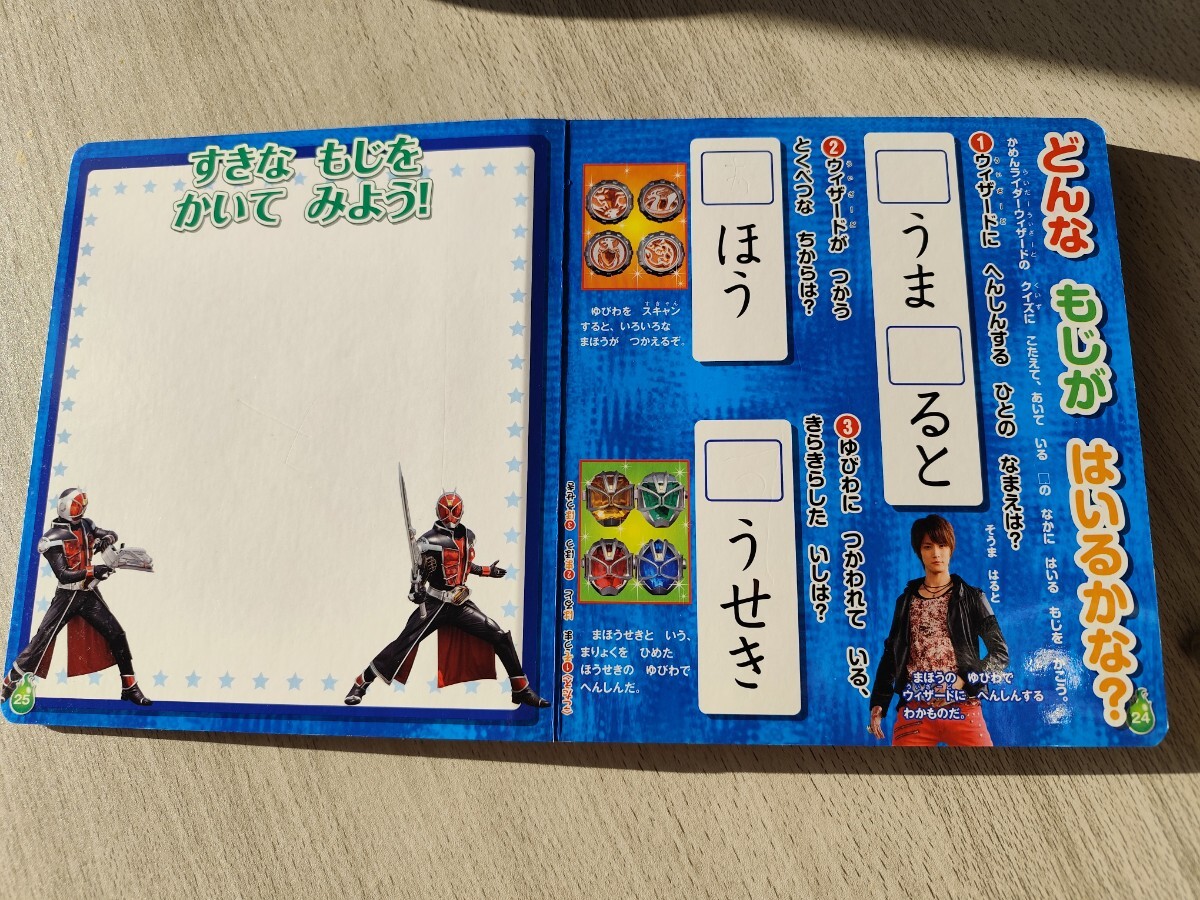 どんな もじが はいるかな?
かめんライダーウィザードの クイズに こたえて、あいて いる □の なかに はいる もじを かこう。
うぃざーど
❶ウィザードに へんしんする ひとの なまえは?
□うま□ると
そうま はると
まほうの ゆびわで
ウィザードに へんしんする
わかものだ。
24
うぃざーど
❷ウィザードが つかう
とくべつな ちからは?
□ほう
すきゃん
ゆびわを スキャン
すると、いろいろな
まほうが つかえるぞ。
❸ゆびわに つかわれて いる、
きらきらした いしは?
□うせき
まほうせきと いう、
まりょくを ひめた
ほうせきの ゆびわで
へんしんだ。
すきな もじを
かいて みよう!
25